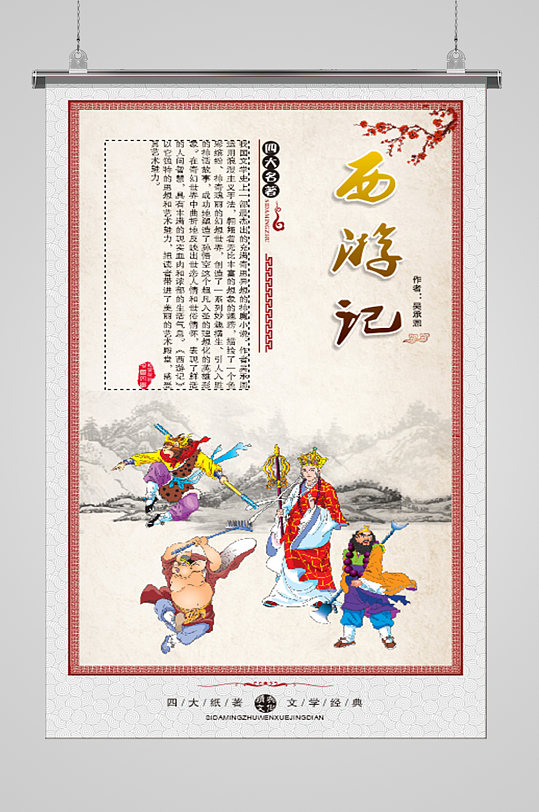 西游记
作者：吴承恩
四大名著
SIDAMINGZHU
我国文学史上一部最杰出的充满奇思异想的神魔小说。作者吴承恩
运用浪漫主义手法，翱翔着无比丰富的想象的翅膀，描绘了一个色
彩缤纷、神奇瑰丽的幻想世界，创造了一系列妙趣横生、引人入胜
的神话故事，成功地塑造了孙悟空这个超凡入圣的理想化的英雄形
象。在奇幻世界中曲折地反映出世态人情和世俗情怀，表现了鲜活
的人间智慧，具有丰满的现实血肉和浓郁的生活气息。《西游记》
以它独特的思想和艺术魅力，把读者带进了美丽的艺术殿堂，感受
其艺术魅力。
四/大/纸/著 文/学/经/典
SIDAMINGZHUWENXUEJINGDIAN